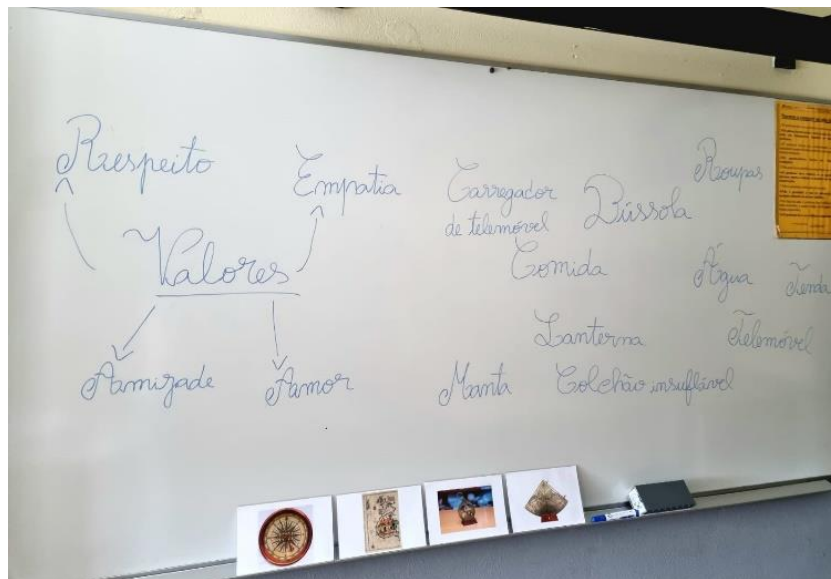 Respeito
Empatia
Valores
Amizade
Amor
Carregador
de telemóvel
Bússola
Roupas
Comida
Água
Tenda
Lanterna
Telemóvel
Manta
Colchão insuflável